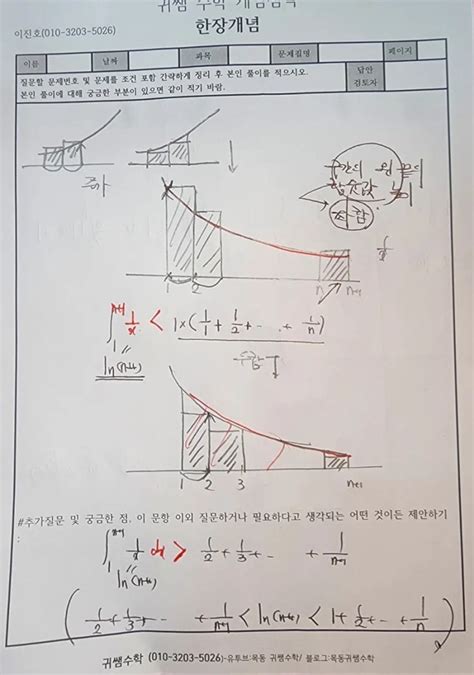 귀쌤 수학 개념
이진호(010-3203-5026)
한장개념
이름 날짜 과목 문제질명 페이지
질문할 문제번호 및 문제를 조건 포함 간략하게 정리 후 본인 풀이를 적으시오.
본인 풀이에 대해 궁금한 부분이 있으면 같이 적기 바람.
답안
검토자
구간의 왼 끝의
함숫값 높이
좌합
1/x
1 2 n n+1
∫₁ⁿ⁺¹ 1/x < 1×(1/1 + 1/2 + - .. + 1/n)
ln(n+1)
1 2 3 n+1
#추가질문 및 궁금한 점. 이 문항 이외 질문하거나 필요하다고 생각되는 어떤 것이든 제안하기
:
∫₁ⁿ⁺¹ 1/x dx > 1/2 + 1/3 + - .. + 1/n+1
ln(n+1)
( 1/2 + 1/3 + - .. + 1/n+1 < ln(n+1) < 1 + 1/2 + - .. + 1/n )
귀쌤수학 (010-3203-5026)-유투브:목동 귀쌤수학/ 블로그:목동귀쌤수학